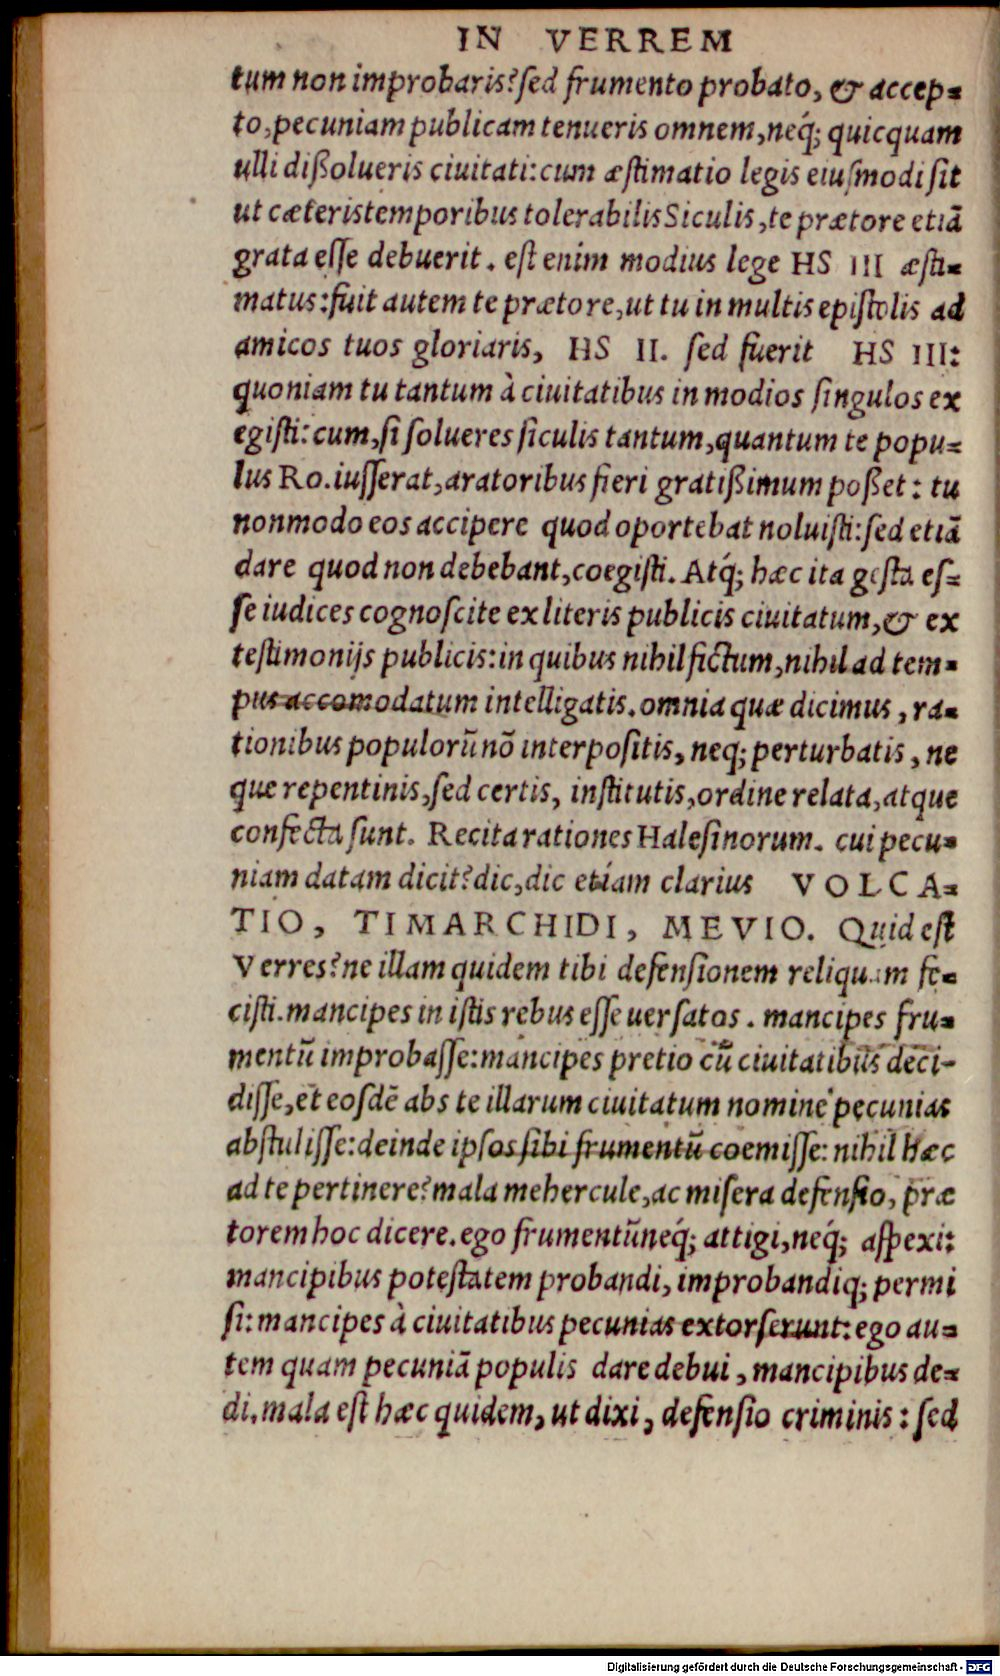 IN VERREM
tum non improbaris? sed frumento probato, & accep-
to, pecuniam publicam tenueris omnem, neq́; quicquam
ulli dißolueris ciuitati: cum æstimatio legis eiusmodi sit
ut cæteris temporibus tolerabilis Siculis, te prætore etiã
grata esse debuerit. est enim modius lege HS III æsti-
matus: fuit autem te prætore, ut tu in multis epistolis ad
amicos tuos gloriaris, HS II. sed fuerit HS III:
quoniam tu tantum à ciuitatibus in modios singulos ex
egisti: cum, si solueres siculis tantum, quantum te popu-
lus Ro. iusserat, aratoribus fieri gratißimum poßet: tu
nonmodo eos accipere quod oportebat noluisti: sed etiã
dare quod non debebant, coegisti. Atq́; hæc ita gesta es-
se iudices cognoscite ex literis publicis ciuitatum, & ex
testimonijs publicis: in quibus nihil fictum, nihil ad tem-
pus accomodatum intelligatis. omnia quæ dicimus, ra-
tionibus populorũ nõ interpositis, neq; perturbatis, ne
que repentinis, sed certis, institutis, ordine relata, atque
confecta sunt. Recita rationes Halesinorum. cui pecu-
niam datam dicit? dic, dic etiam clarius VOLCA-
TIO, TIMARCHIDI, MEVIO. Quid est
Verres? ne illam quidem tibi defensionem reliquam fe-
cisti. mancipes in istis rebus esse uersatos. mancipes fru-
mentũ improbasse: mancipes pretio cũ ciuitatibus deci-
disse, et eosdẽ abs te illarum ciuitatum nomine pecunias
abstulisse: deinde ipsos sibi frumentũ coemisse: nihil hæc
ad te pertinere? mala mehercule, ac misera defensio, præ
torem hoc dicere. ego frumentũ neq́; attigi, neq́; aspexi:
mancipibus potestatem probandi, improbandiq; permi
si: mancipes à ciuitatibus pecunias extorserunt: ego au-
tem quam pecuniã populis dare debui, mancipibus de-
di. mala est hæc quidem, ut dixi, defensio criminis: sed
Digitalisierung gefördert durch die Deutsche Forschungsgemeinschaft - DFG